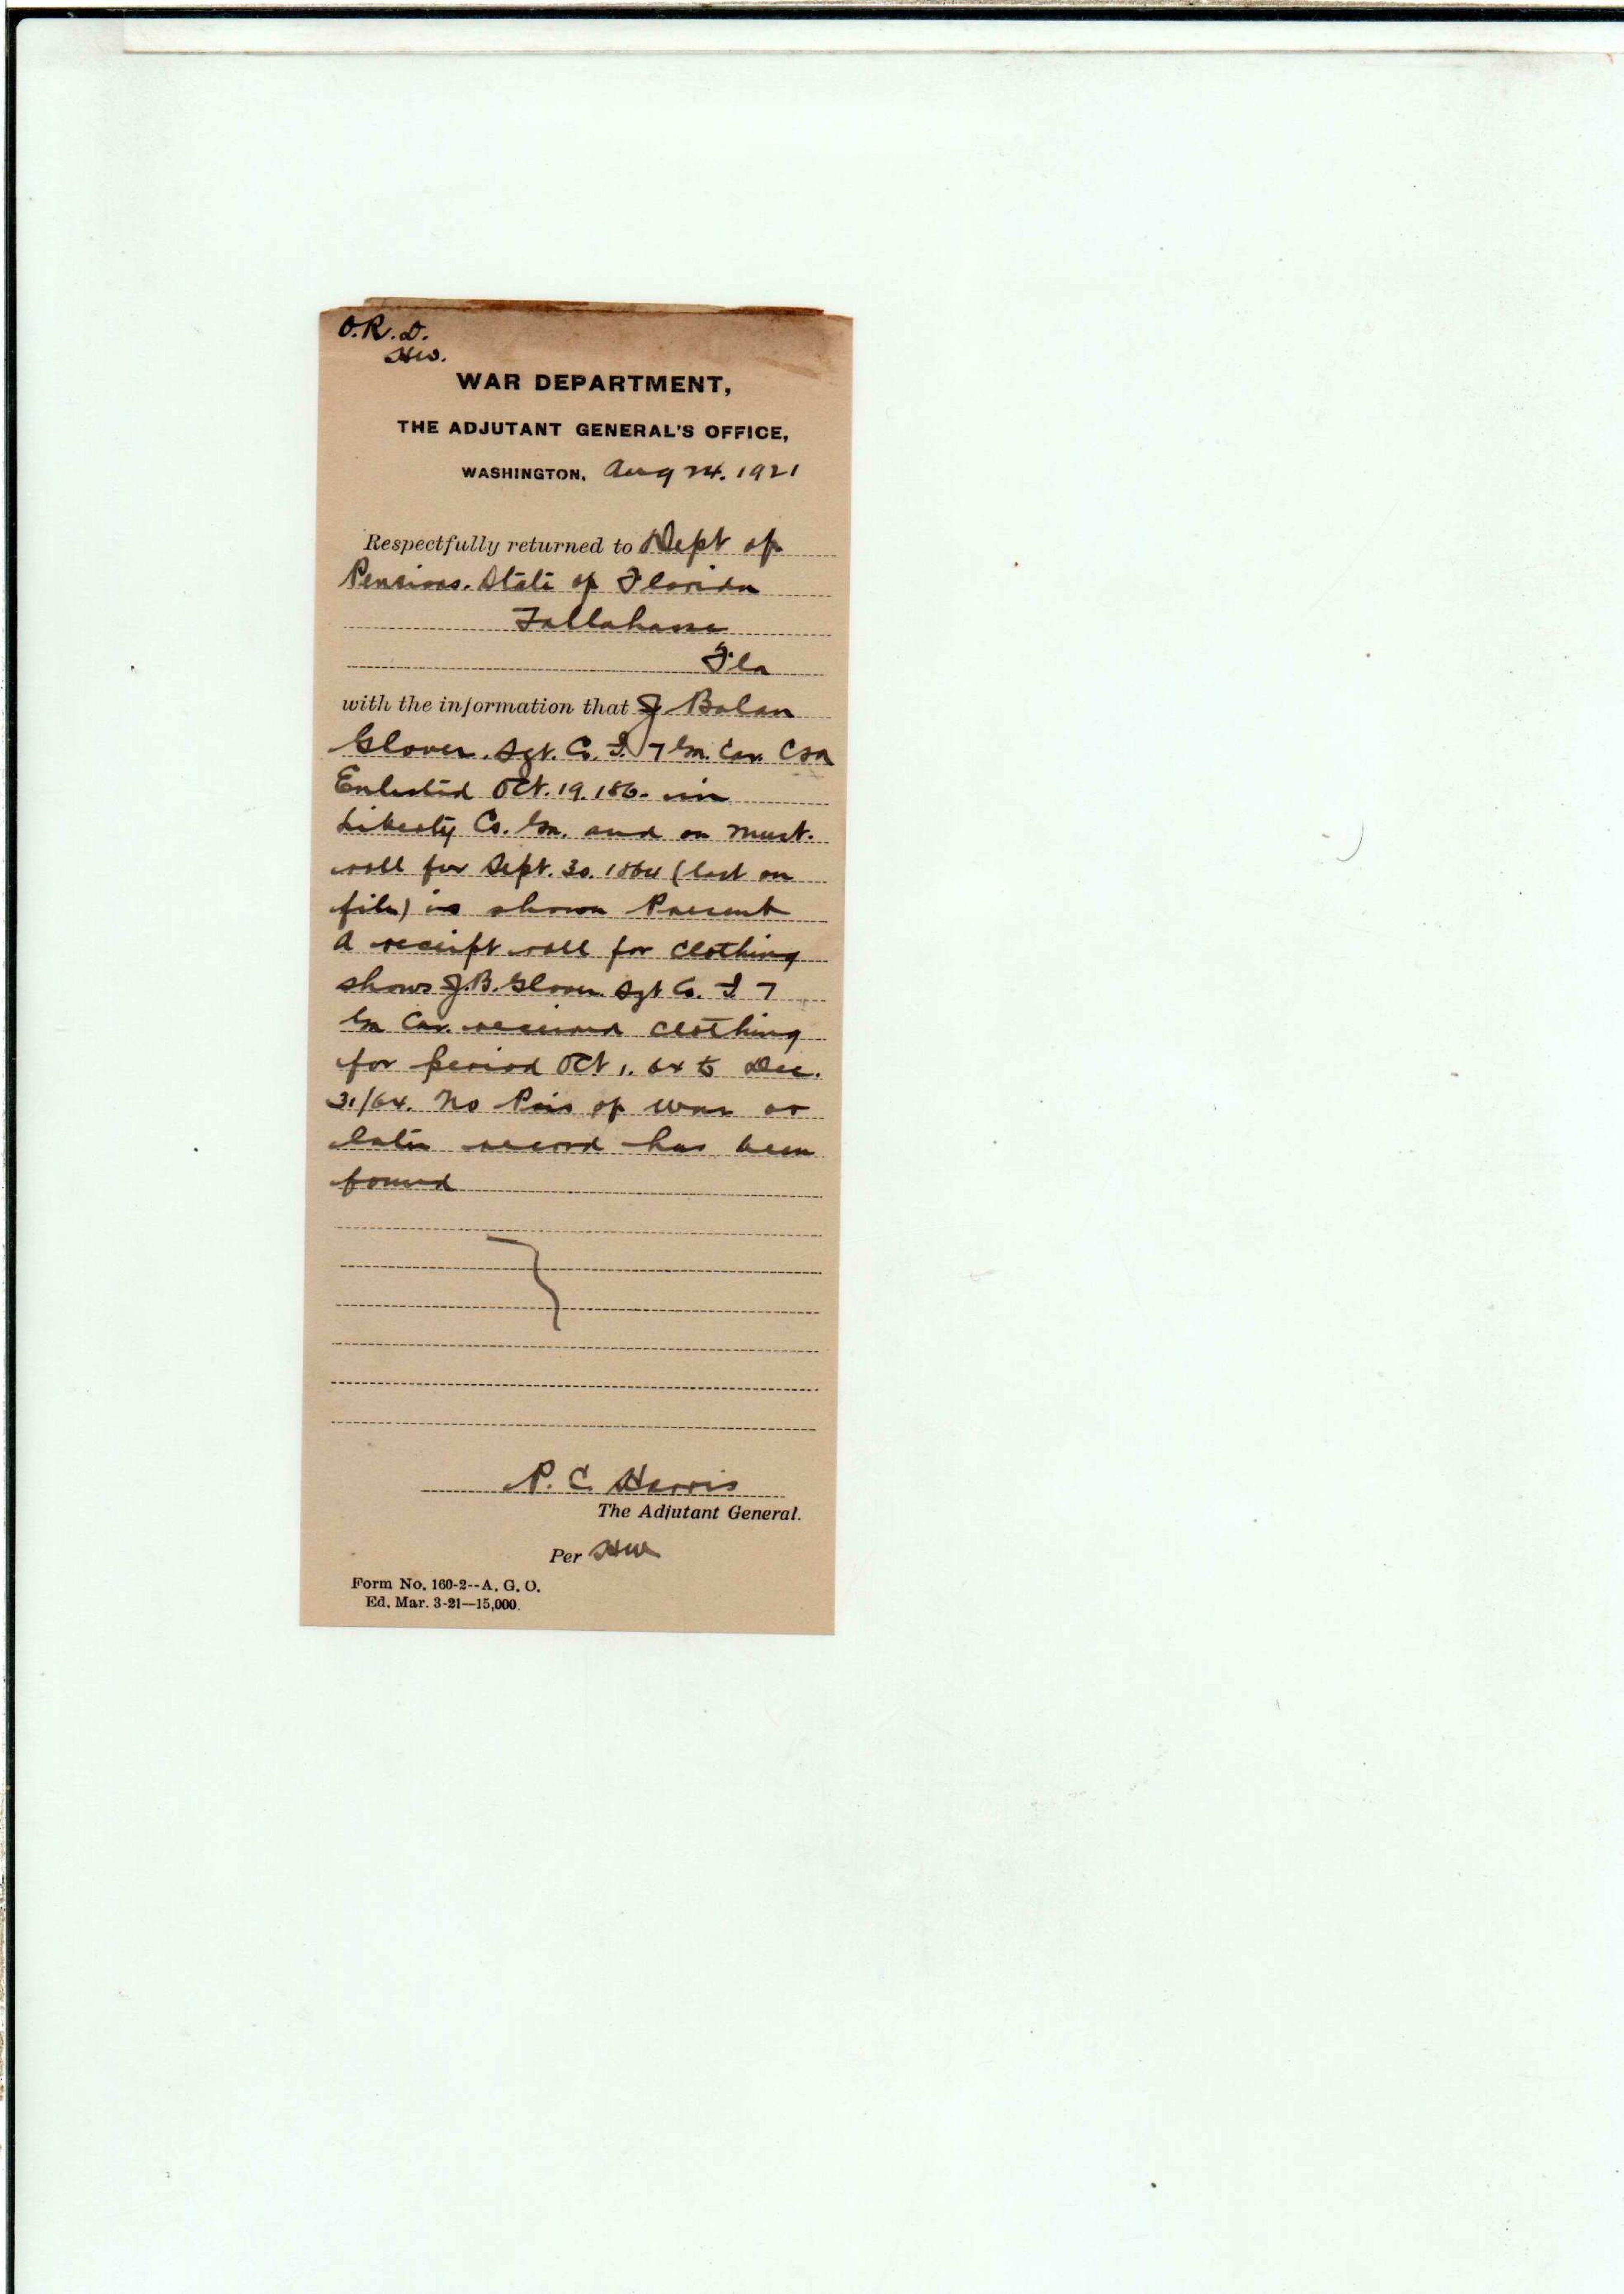 O.R.D.
HW.
WAR DEPARTMENT,
THE ADJUTANT GENERAL'S OFFICE,
WASHINGTON, Aug 24. 1921
Respectfully returned to Dept of
Pensions. State of Florida
Tallahasse
Fla
with the information that J Bolan
Glover. Sgt. Co. I. 7 Ga. Cav. CSA
Enlisted Oct. 19. 186- in
Liberty Co. Ga. and on Must.
roll for Sept. 30. 1864 (last on
file) is shown Present
A receipt roll for clothing
shows J.B. Glover. Sgt Co. I 7
Ga Cav. received clothing
for period Oct 1. 64 to Dec.
31/64. No Pris of War or
later record has been
found
P. C. Harris
The Adjutant General.
Per HW
Form No. 160-2--A. G. O.
Ed. Mar. 3-21—15,000.